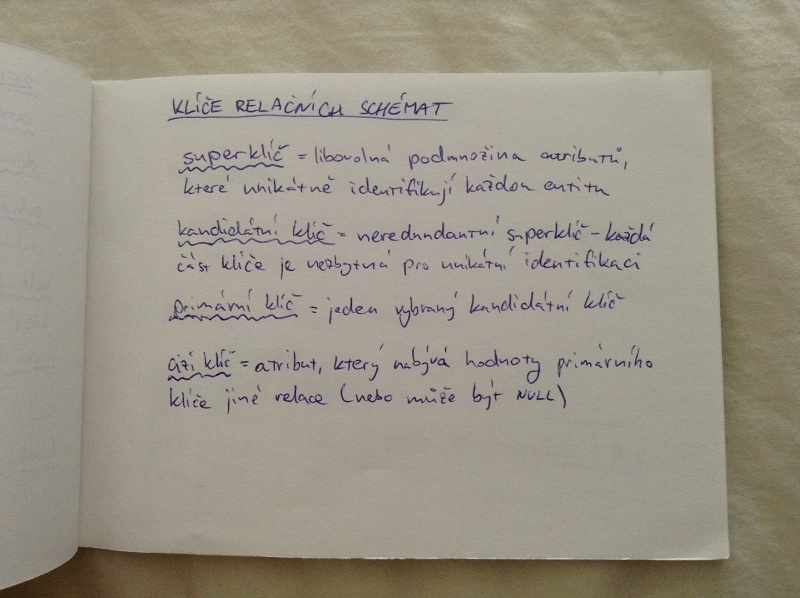 KLÍČE RELAČNÍCH SCHÉMAT
superklíč = libovolná podmnožina atributů,
které unikátně identifikují každou entitu
kandidátní klíč = neredundantní superklíč - každá
část klíče je nezbytná pro unikátní identifikaci
primární klíč = jeden vybraný kandidátní klíč
cizí klíč = atribut, který nabývá hodnoty primárního
klíče jiné relace (nebo může být NULL)